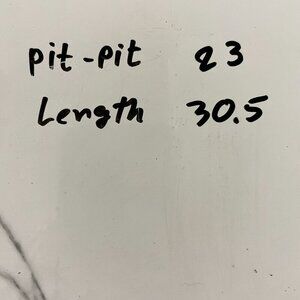 pit-pit 23
Length 30.5